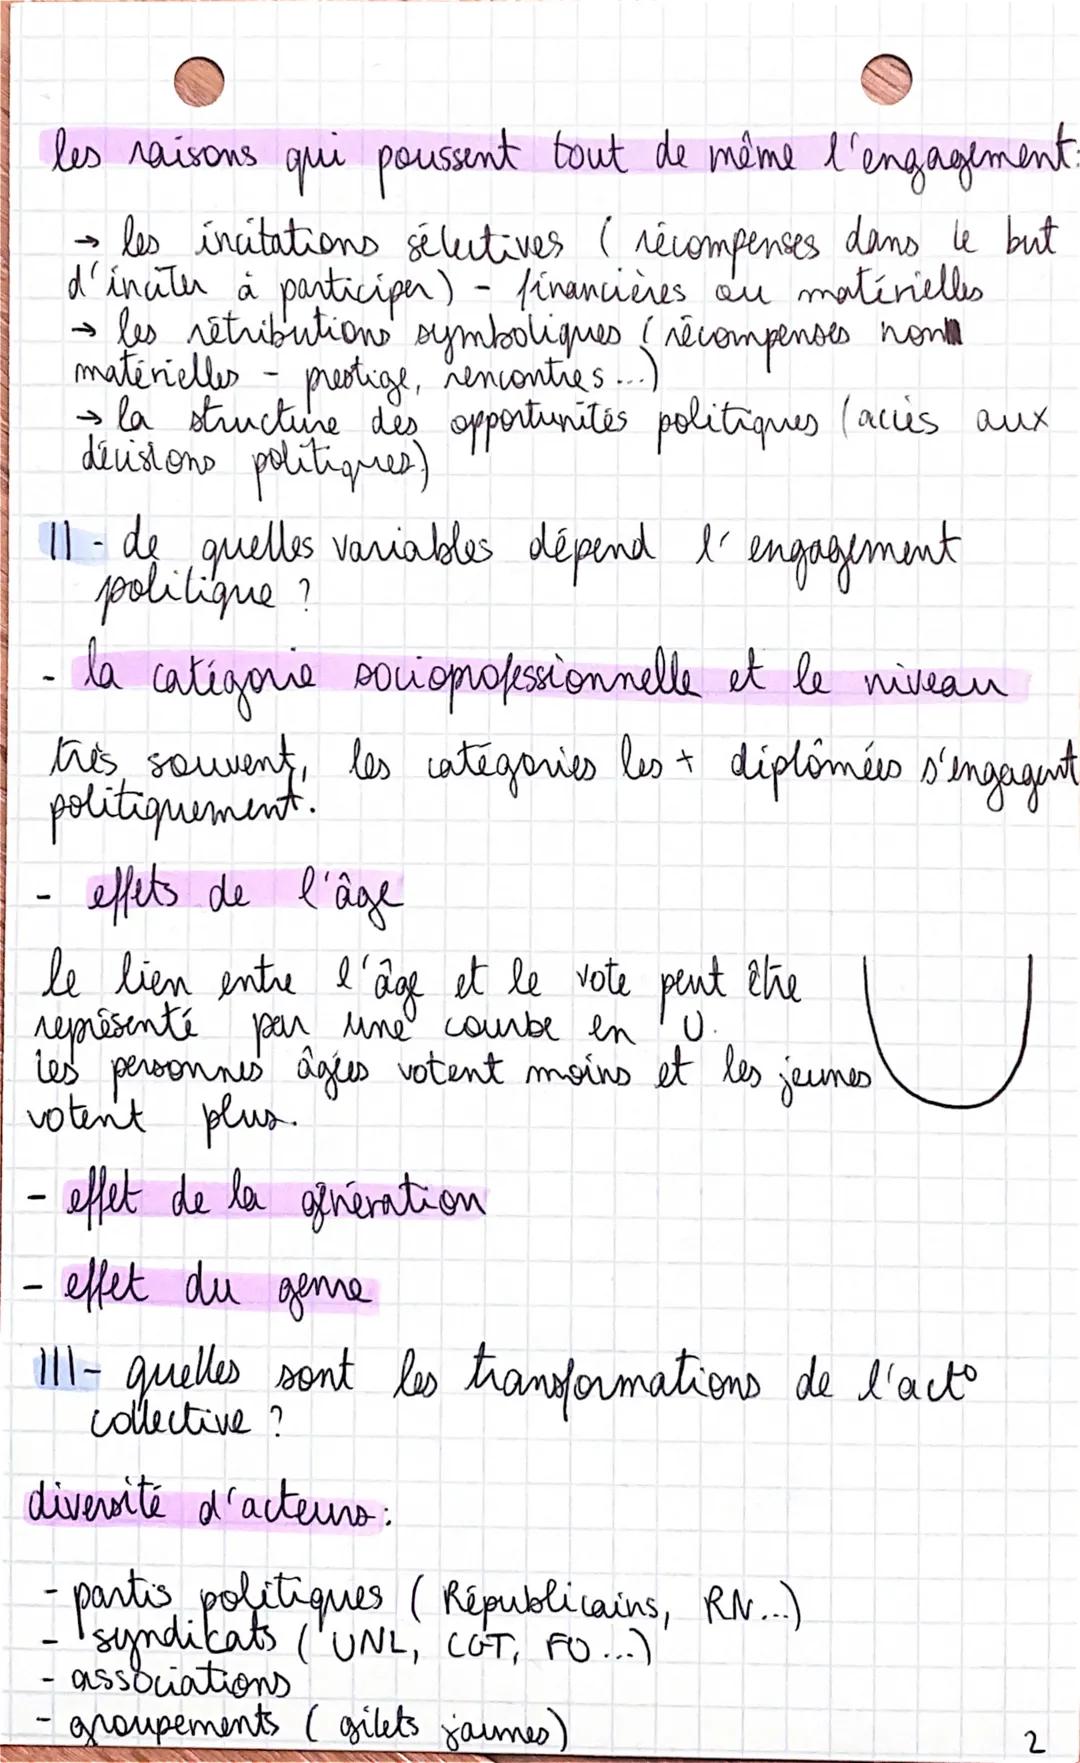 les raisons qui poussent tout de même l'engagement:
→ les incitations sélectives ( récompenses dans le but
d'inciter à participer) - financières ou matérielles
→ les rétributions symboliques ( récompenses non
matérielles - prestige, rencontres ...)
→ la structure des opportunités politiques (accès aux
décisions politiques)
II - de quelles variables dépend l'engagement
politique ?
- la catégorie socioprofessionnelle et le niveau
très souvent, les catégories les + diplômées s'engagent
politiquement.
- effets de l'âge
le lien entre l'âge et le vote peut être
représenté par une courbe en U.
les personnes âgées votent moins et les jeunes
votent plus.
- effet de la génération
- effet du genre
III - quelles sont les transformations de l'act°
collective ?
diversité d'acteurs :
- partis politiques ( Républicains, RN...)
- syndikats ( UNL, CGT, FO ...)
- associations
- groupements ( gilets jaunes)
2